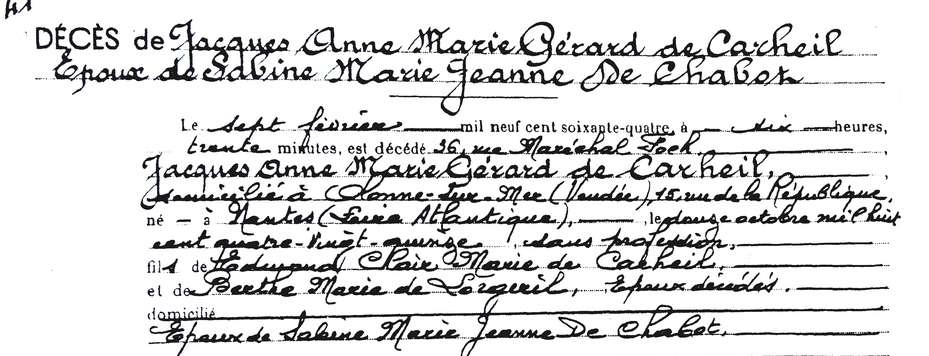 41
DÉCÈS de Jacques Anne Marie Gérard de Carheil
Epoux de Sabine Marie Jeanne De Chabot
Le sept février mil neuf cent soixante-quatre, à six heures,
trente minutes, est décédé 36, rue Maréchal Foch,
Jacques Anne Marie Gérard de Carheil,
domicilié à Olonne-Sur-Mer (Vendée), 15, rue de la République,
né - à Nantes (Loire Atlantique), le douze octobre mil huit
cent quatre-vingt-quinze, sans profession,
fils de Edmond Clair Marie de Carheil,
et de Berthe Marie de Lorgeril, Epoux décédés.
domicilié
Epoux de Sabine Marie Jeanne De Chabot.